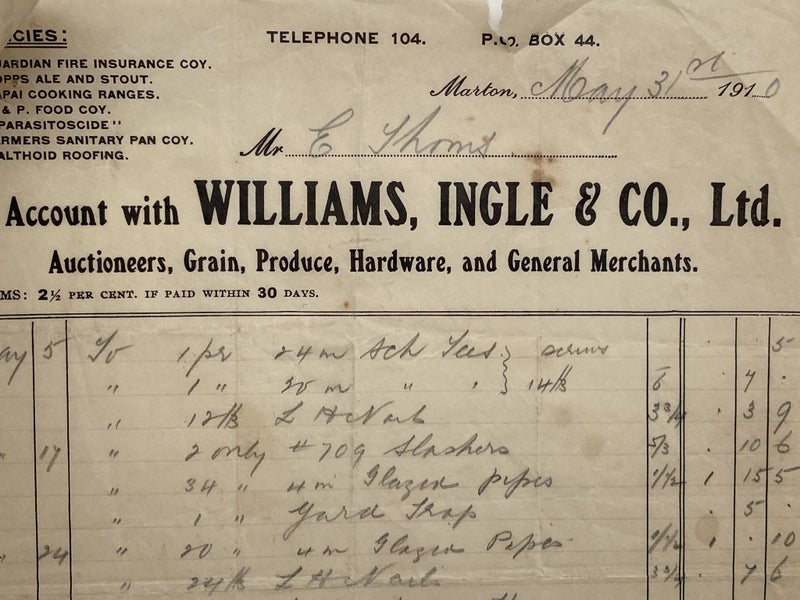 CIES:
TELEPHONE 104. P.O. BOX 44.
ARDIAN FIRE INSURANCE COY.
OPPS ALE AND STOUT.
APAI COOKING RANGES.
& P. FOOD COY.
PARASITOSCIDE"
ARMERS SANITARY PAN COY.
ALTHOID ROOFING.
Marton, May 31st 1910
Mr E Thoms
Account with WILLIAMS, INGLE & CO., Ltd.
Auctioneers, Grain, Produce, Hardware, and General Merchants.
MS: 2½ PER CENT. IF PAID WITHIN 30 DAYS.
ay 5 To 1 pr 24 in Sch Tees } screws 5
" 1 " 20 in " " } 14 lb 6 7 .
" 12 lb L H Nails 3¾ . 3 9
" 17 " 2 only #709 Slashers 5/3 . 10 6
" 34 " 4 in Glazed pipes 1/½ 1 15 5
" 1 " Yard Trap . 5 .
" 24 " 20 " 4 in Glazed Pipes 1/½ 1 . 10
" 24 lb L H Nails 3¾ 7 6